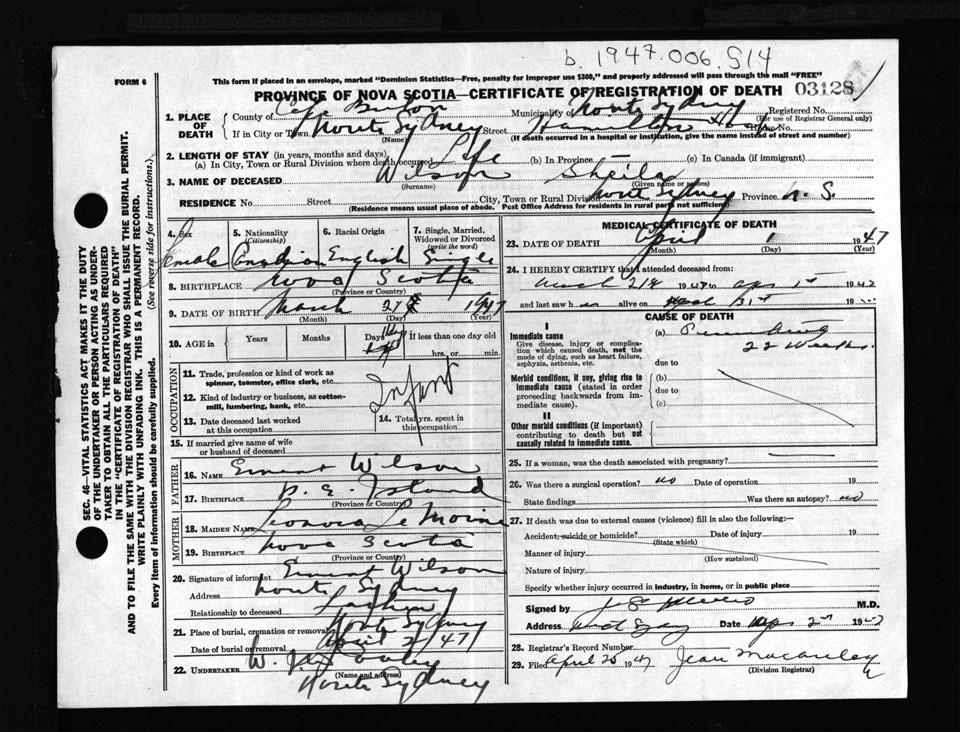 b. 1947.006.514
FORM 6
This form if placed in an envelope, marked "Dominion Statistics—Free, penalty for improper use $300," and properly addressed will pass through the mail "FREE"
PROVINCE OF NOVA SCOTIA—CERTIFICATE OF REGISTRATION OF DEATH 03128
SEC. 46—VITAL STATISTICS ACT MAKES IT THE DUTY
OF THE UNDERTAKER OR PERSON ACTING AS UNDER-
TAKER TO OBTAIN ALL THE PARTICULARS REQUIRED
IN THE "CERTIFICATE OF REGISTRATION OF DEATH"
AND TO FILE THE SAME WITH THE DIVISION REGISTRAR WHO SHALL ISSUE THE BURIAL PERMIT.
WRITE PLAINLY WITH UNFADING INK. THIS IS A PERMANENT RECORD.
Every item of information should be carefully supplied. (See reverse side for instructions.)
1. PLACE OF DEATH
County of Cape Breton Municipality of North Sydney Registered No.
(For use of Registrar General only)
If in City or Town North Sydney Street
(Name) (If death occurred in a hospital or institution, give the name instead of street and number)
2. LENGTH OF STAY (in years, months and days)
(a) In City, Town or Rural Division where death occurred Life (b) In Province — (c) In Canada (if immigrant)
3. NAME OF DECEASED Wilson Sheila
(Surname) (Given name or names)
RESIDENCE No. Street City, Town or Rural Division North Sydney Province N. S.
(Residence means usual place of abode. Post Office Address for residents in rural parts not sufficient)
4. Sex Female
5. Nationality (Citizenship) Canadian
6. Racial Origin English
7. Single, Married, Widowed or Divorced (write the word) Single
8. BIRTHPLACE Nova Scotia
(Province or Country)
9. DATE OF BIRTH March 27 1947
(Month) (Day) (Year)
10. AGE in Years Months Days If less than one day old
hrs., or min.
OCCUPATION
11. Trade, profession or kind of work as spinner, teamster, office clerk, etc. Infant
12. Kind of industry or business, as cotton-mill, lumbering, bank, etc.
13. Date deceased last worked at this occupation
14. Total yrs. spent in this occupation
15. If married give name of wife or husband of deceased
FATHER
16. NAME Ernest Wilson
17. BIRTHPLACE P. E. Island
(Province or Country)
MOTHER
18. MAIDEN NAME Leonora Le Moine
19. BIRTHPLACE Nova Scotia
(Province or Country)
20. Signature of informant Ernest Wilson
Address North Sydney
Relationship to deceased Father
21. Place of burial, cremation or removal North Sydney
Date of burial or removal April 2/47
22. UNDERTAKER W.
(Name and address)
North Sydney
MEDICAL CERTIFICATE OF DEATH
23. DATE OF DEATH April 1 1947
(Month) (Day) (Year)
24. I HEREBY CERTIFY that I attended deceased from
March 1947 to Apr 1st 1947
and last saw h alive on 31st 19
CAUSE OF DEATH
I
Immediate cause
Give disease, injury or complication which caused death, not the mode of dying, such as heart failure, asphyxia, asthenia, etc.
(a)
due to
Morbid conditions, if any, giving rise to immediate cause (stated in order proceeding backwards from immediate cause).
(b)
due to
(c)
II
Other morbid conditions (if important) contributing to death but not causally related to immediate cause.
25. If a woman, was the death associated with pregnancy? —
26. Was there a surgical operation? no Date of operation 19
State findings Was there an autopsy? no
27. If death was due to external causes (violence) fill in also the following:—
Accident, suicide or homicide? Date of injury 19
(State which)
Manner of injury
(How sustained)
Nature of injury
Specify whether injury occurred in industry, in home, or in public place
Signed by M.D.
Address Date Apr 2nd 1947
28. Registrar's Record Number
29. Filed April 25 1947 Jean
(Division Registrar)